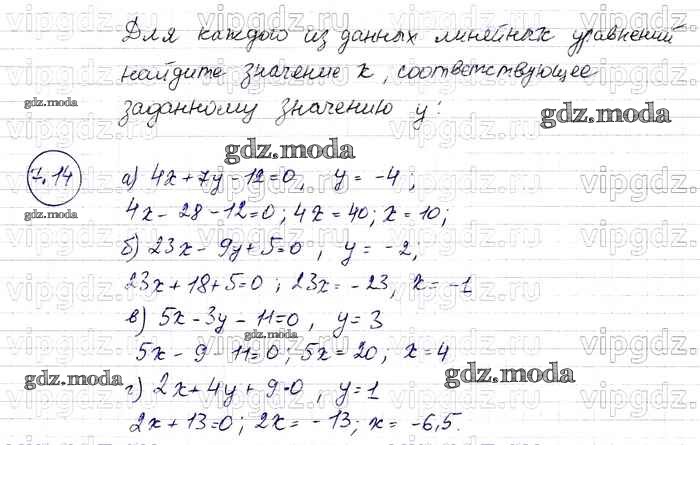 Для каждого из данных линейных уравнений
найдите значение x, соответствующее
заданному значению y:
7.14
а) 4x + 7y - 12 = 0, y = -4;
4x - 28 - 12 = 0; 4x = 40; x = 10;
б) 23x - 9y + 5 = 0, y = -2;
23x + 18 + 5 = 0; 23x = -23, x = -1
в) 5x - 3y - 11 = 0, y = 3
5x - 9 - 11 = 0; 5x = 20; x = 4
г) 2x + 4y + 9 = 0, y = 1
2x + 13 = 0; 2x = -13; x = -6,5.
gdz.moda
gdz.moda
gdz.moda
gdz.moda
gdz.moda
gdz.moda
gdz.moda
vipgdz.ru